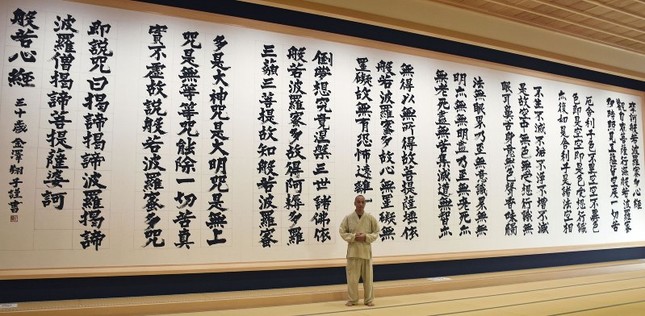 摩訶般若波羅蜜多心経
観自在菩薩行深般若波羅蜜
多時照見五蘊皆空度一切苦
厄舎利子色不異空空不異色
色即是空空即是色受想行識
亦復如是舎利子是諸法空相
不生不滅不垢不浄不増不減
是故空中無色無受想行識無
眼耳鼻舌身意無色声香味触
法無眼界乃至無意識界無無
明亦無無明盡乃至無老死亦
無老死盡無苦集滅道無智亦
無得以無所得故菩提薩埵依
般若波羅蜜多故心無罣礙無
罣礙故無有恐怖遠離
倒夢想究竟涅槃三世諸佛依
般若波羅蜜多故得阿耨多羅
三藐三菩提故知般若波羅蜜
多是大神咒是大明咒是無上
咒是無等等咒能除一切苦真
實不虚故説般若波羅蜜多咒
即説咒曰掲諦波羅掲諦
波羅僧掲諦菩提薩婆訶
般若心経
三十歳 金澤翔子謹書